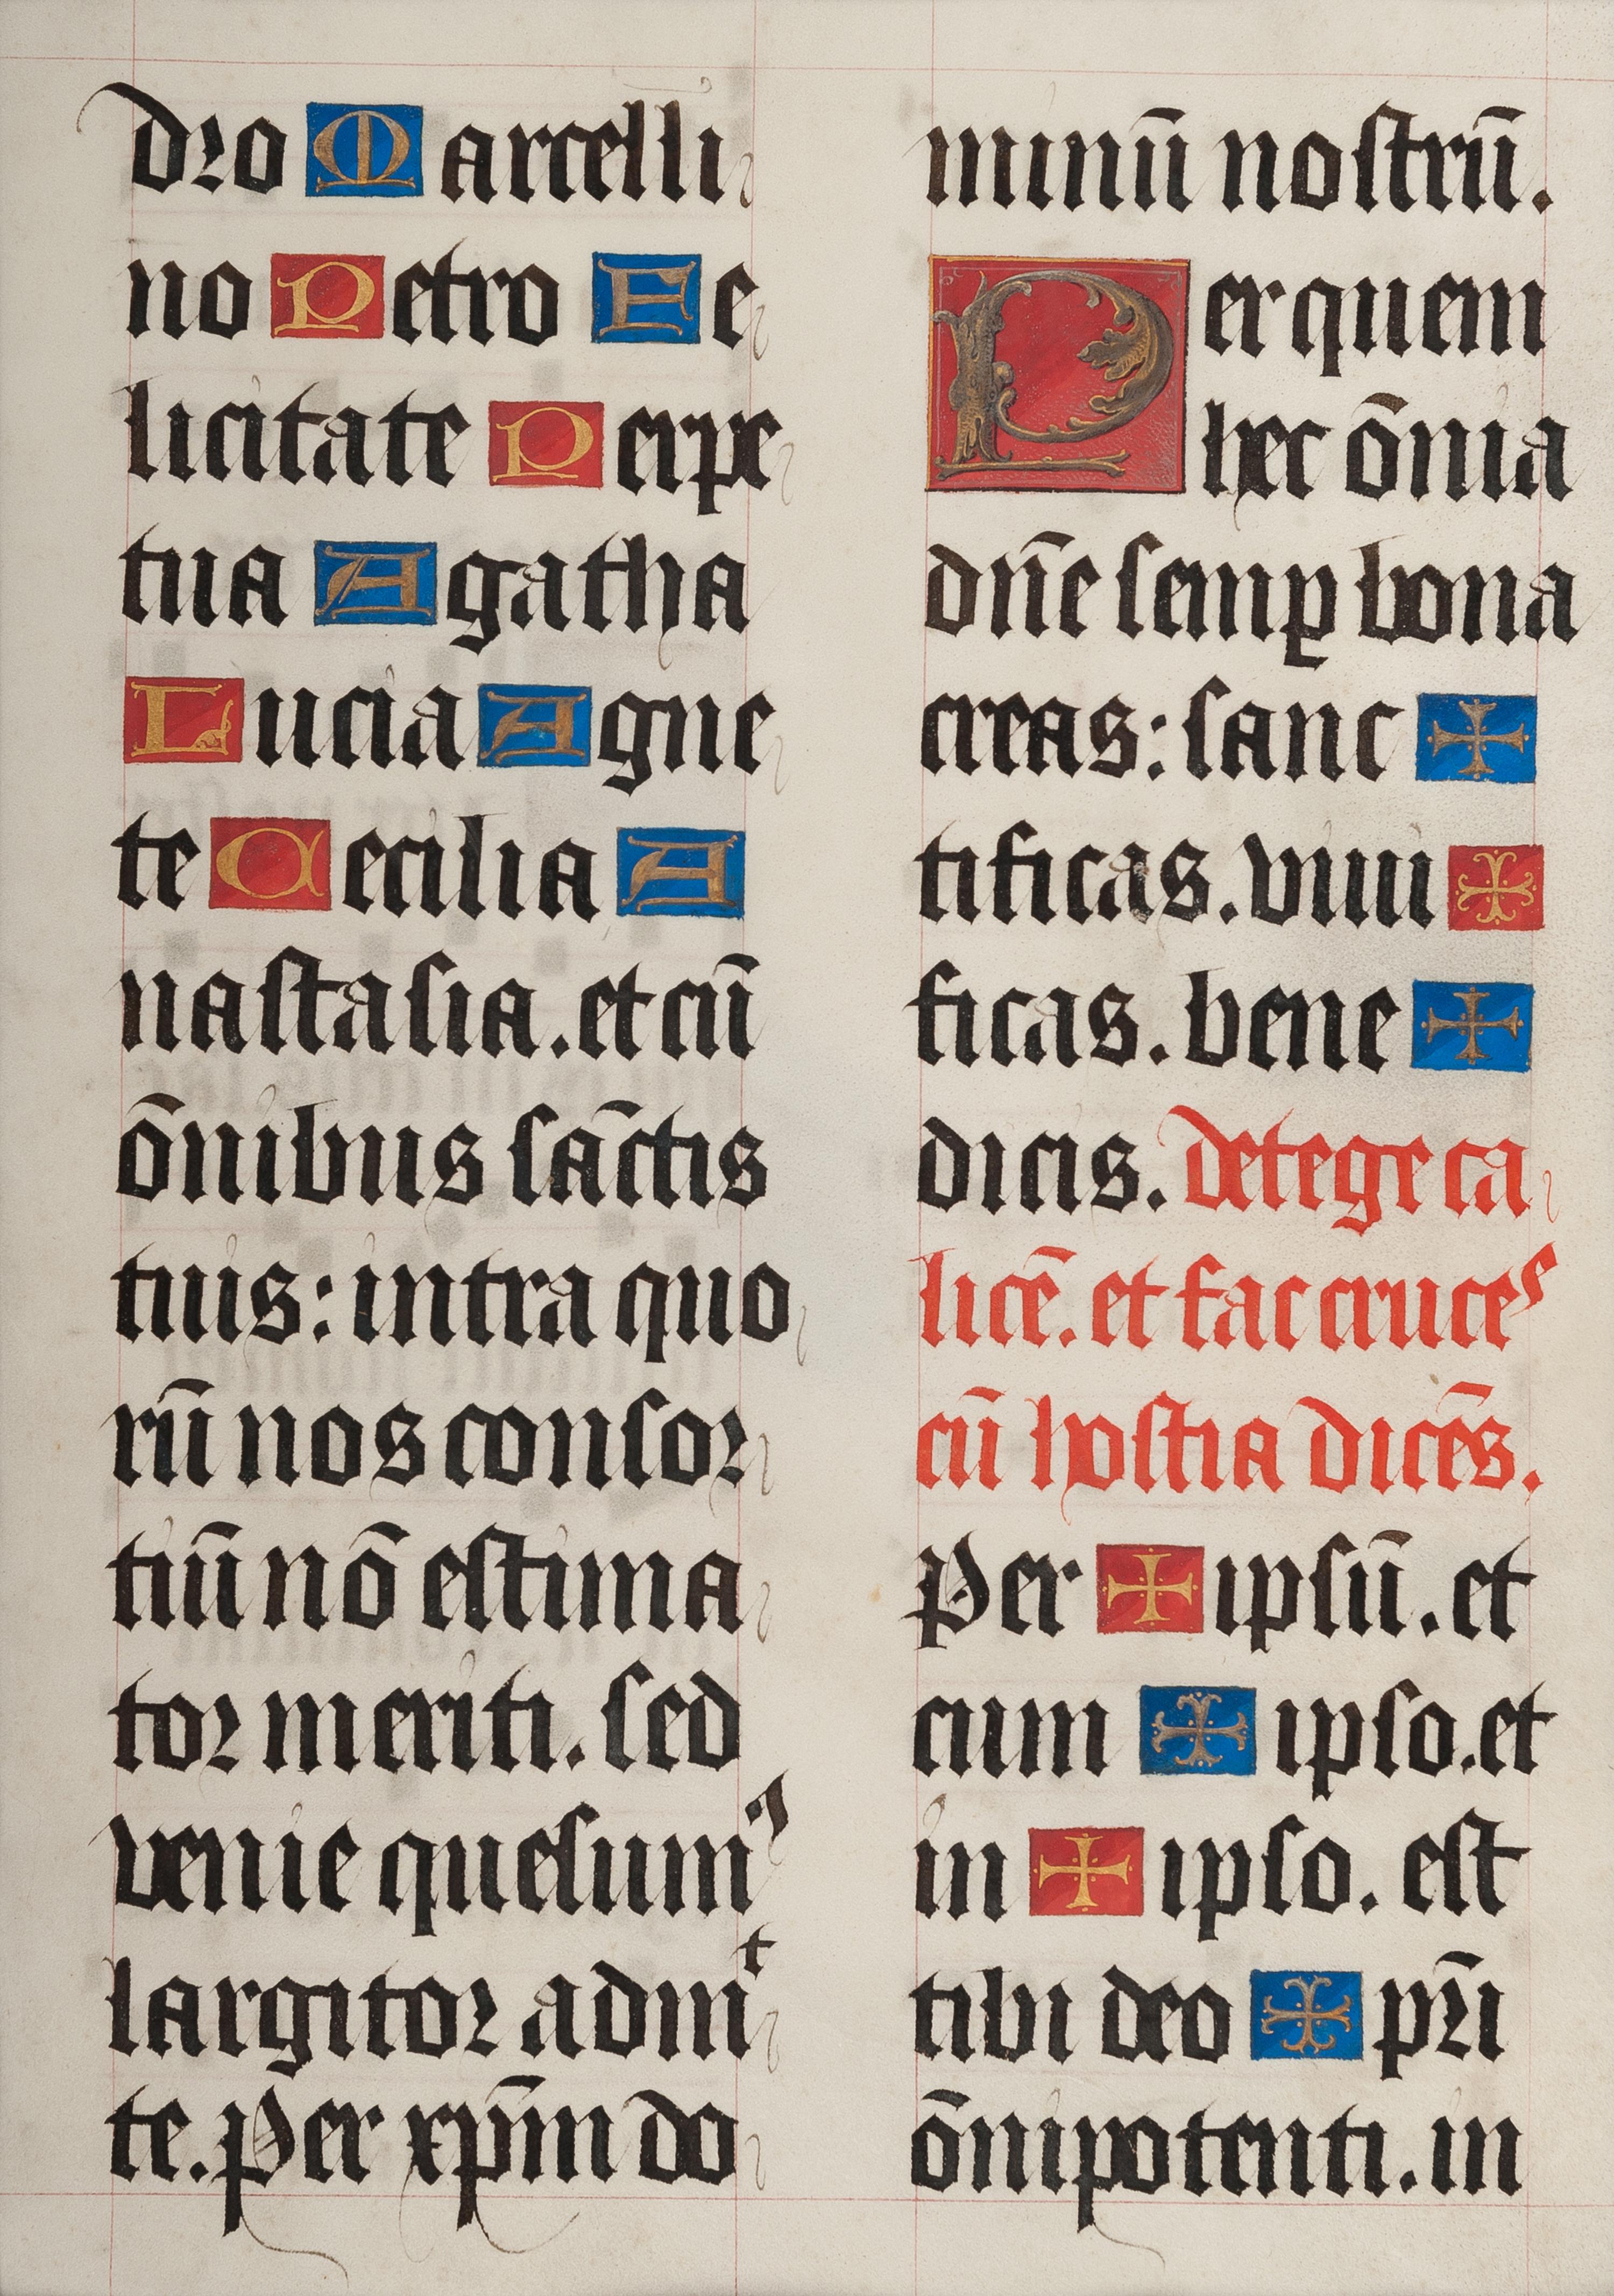 dro Marcelli
no Petro Fe
licitate Perpe
tua Agatha
Lucia Agne
te Cecilia A
nastasia. et cū
ōnibus sāctis
tuis: intra quo
rū nos consor
tiū nō estima
tor meriti. sed
venie quesumꝰ
largitor admᵗ
te. Per xp̄m do
minū nostrū.
Per quem
hec ōnia
dn̄e semꝑ bona
creas: sanc ✠
tificas. vivi ✠
ficas. bene ✠
dicis. detege ca
licē. et fac cruceˢ
cū hostia dicēs.
Per ✠ ipsū. et
cum ✠ ipso. et
in ✠ ipso. est
tibi deo ✠ pr̄i
ōnipotenti. in